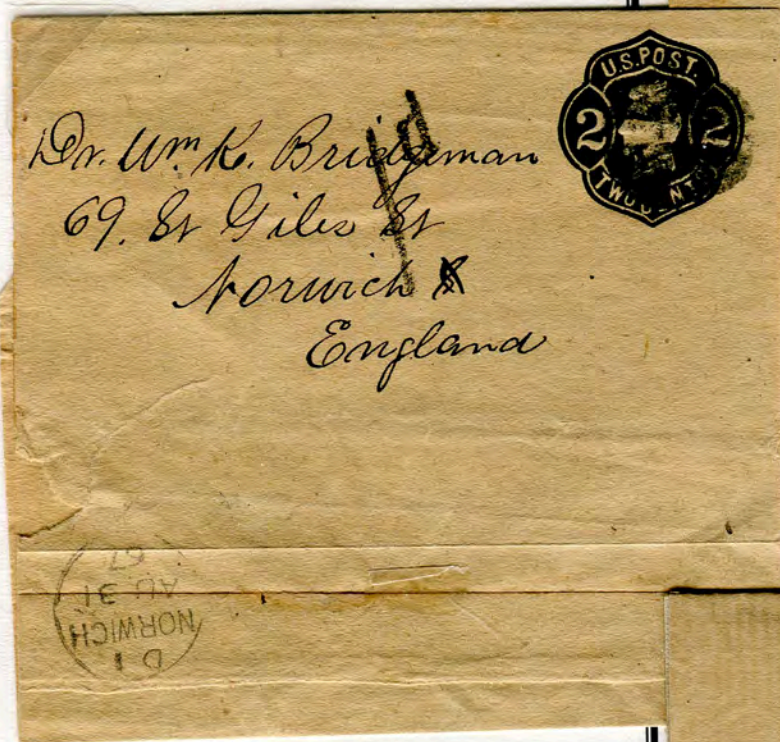 U.S.POST.
2 2
TWO CENTS
Dr. Wm K. Bridgeman
69. St Giles St
Norwich
England
1d
D 1
NORWICH
AU 31
67